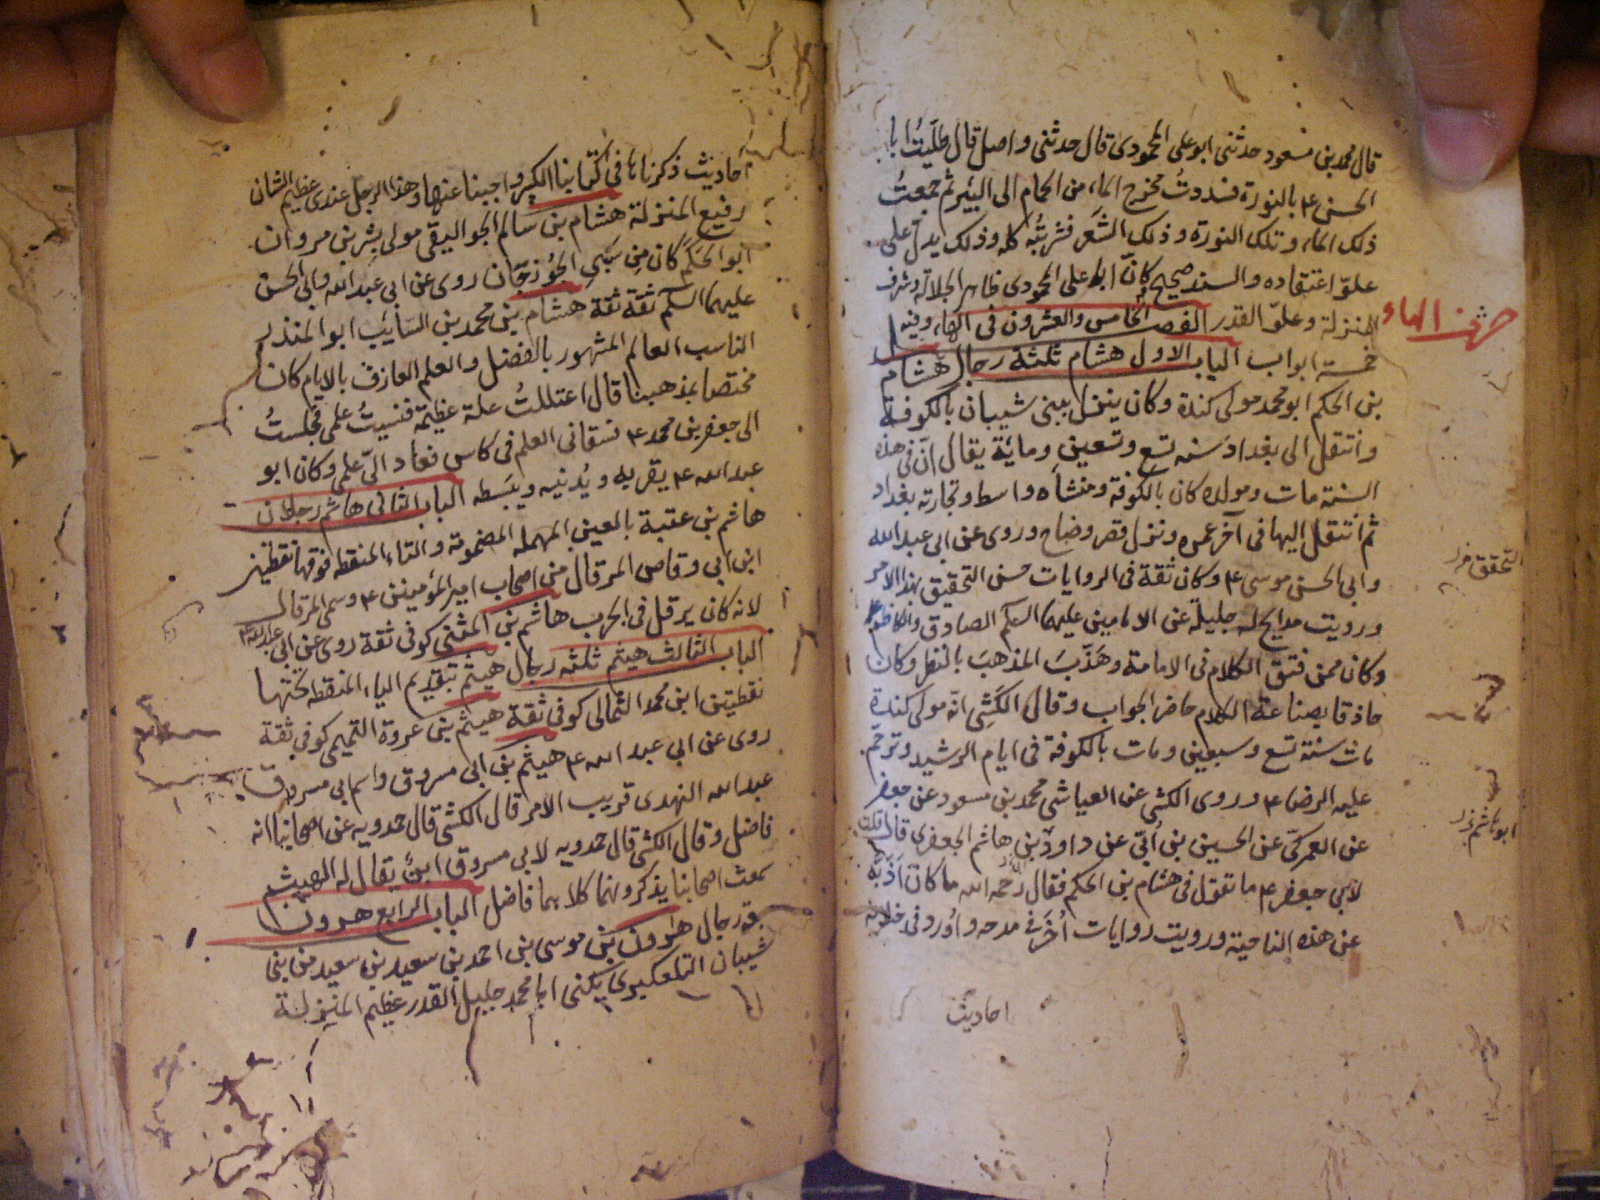 قال محمد بن مسعود حدثنى ابو على المحمودى قال حدثنى واصل قال طليت ابا
الحسن ع بالنورة فسددت مخرج الماء من الحمام الى البئر ثم جمعت
ذلك الماء وتلك النورة وذلك الشعر فشربته كله وذلك يدل على
علو اعتقاده والسند صحيح كان ابا على المحمودى ظاهر الجلالة وشرف
المنزلة وعلو القدر الفصل الخامس والعشرون فى الهاء وفيه
حرف الهاء
خمسة ابواب الباب الاول هشام ثلثة رجال هشام
بن الحكم ابو محمد مولى كندة وكان ينزل ببنى شيبان بالكوفة
وانتقل الى بغداد سنه تسع وتسعين ومائة يقال ان فى هذه
السنة مات ومولده كان بالكوفة ومنشاه واسط وتجارته بغداد
ثم انتقل اليها فى آخر عمره ونزل قصر وضاح وروى عن ابى عبد الله
وابى الحسن موسى ع وكان ثقة فى الروايات حسن التحقيق بهذا الامر
ورويت مدايح له جليلة عن الامامين عليهما السلم الصادق والكاظم ع
وكان ممن فتق الكلام فى الامامة وهذب المذهب بالنظر وكان
حاذقا بصناعة الكلام حاضر الجواب وقال الكشى انه مولى كندة
مات سنة تسع وسبعين ومات بالكوفة فى ايام الرشيد وترحم
عليه الرضا ع وروى الكشى عن العياشى محمد بن مسعود عن جعفر
عن العمركى عن الحسين بن ابى عن داود بن هاشم الجعفرى قال قلت
ابو هاشم
لابى جعفر ع ما تقول فى هشام بن الحكم فقال رحمه الله ما كان اذبه
عن هذه الناحية ورويت روايات اخر فى مدحه واورد فى خلافه
احاديث
احاديث ذكرناها فى كتابنا الكبير واجبنا عنها وهذا الرجل عندى عظيم الشان
رفيع المنزلة هشام بن سالم الجواليقى مولى بشر بن مروان
ابو الحكم كان من سبى الجوزجان روى عن ابى عبد الله وابى الحسن
عليهما السلم ثقة ثقة هشام بن محمد بن السائب ابو المنذر
الناسب العالم المشهور بالفضل والعلم العارف بالايام كان
مختصا بمذهبنا قال اعتللت علة عظيمة فنسيت علمى فجلست
الى جعفر بن محمد ع فسقانى العلم فى كاس فعاد الى علمى وكان ابو
عبد الله ع يقربه ويدنيه ويبسطه الباب الثانى هاشم رجلان
هاشم بن عتبة بالعين المهملة المضمومة والتاء المنقطه فوقها نقطتين
ابن ابى وقاص المرقال من اصحاب امير المؤمنين ع وسمى المرقال
لانه كان يرقل فى الحرب هاشم بن المثنى كوفى ثقة روى عن ابى عبد الله ع
الباب الثالث هيثم ثلثه رجال هيثم بتقديم الياء المنقطه تحتها
نقطتين ابن محمد الثمالى كوفى ثقة هيثم بن عروة التميمى كوفى ثقة
روى عن ابى عبد الله ع هيثم بن ابى مسروق واسم ابى مسروق
عبد الله النهدى قريب الامر قال الكشى قال حمدويه عن اصحابنا انه
فاضل وقال الكشى قال حمدويه لابى مسروق ابن يقال له الهيثم
سمعت اصحابنا يذكرونهما كلاهما فاضل الباب الرابع هرون
رجال هرون بن موسى بن احمد بن سعيد بن سعيد من بنى
شيبان التلعكبرى يكنى ابا محمد جليل القدر عظيم المنزلة